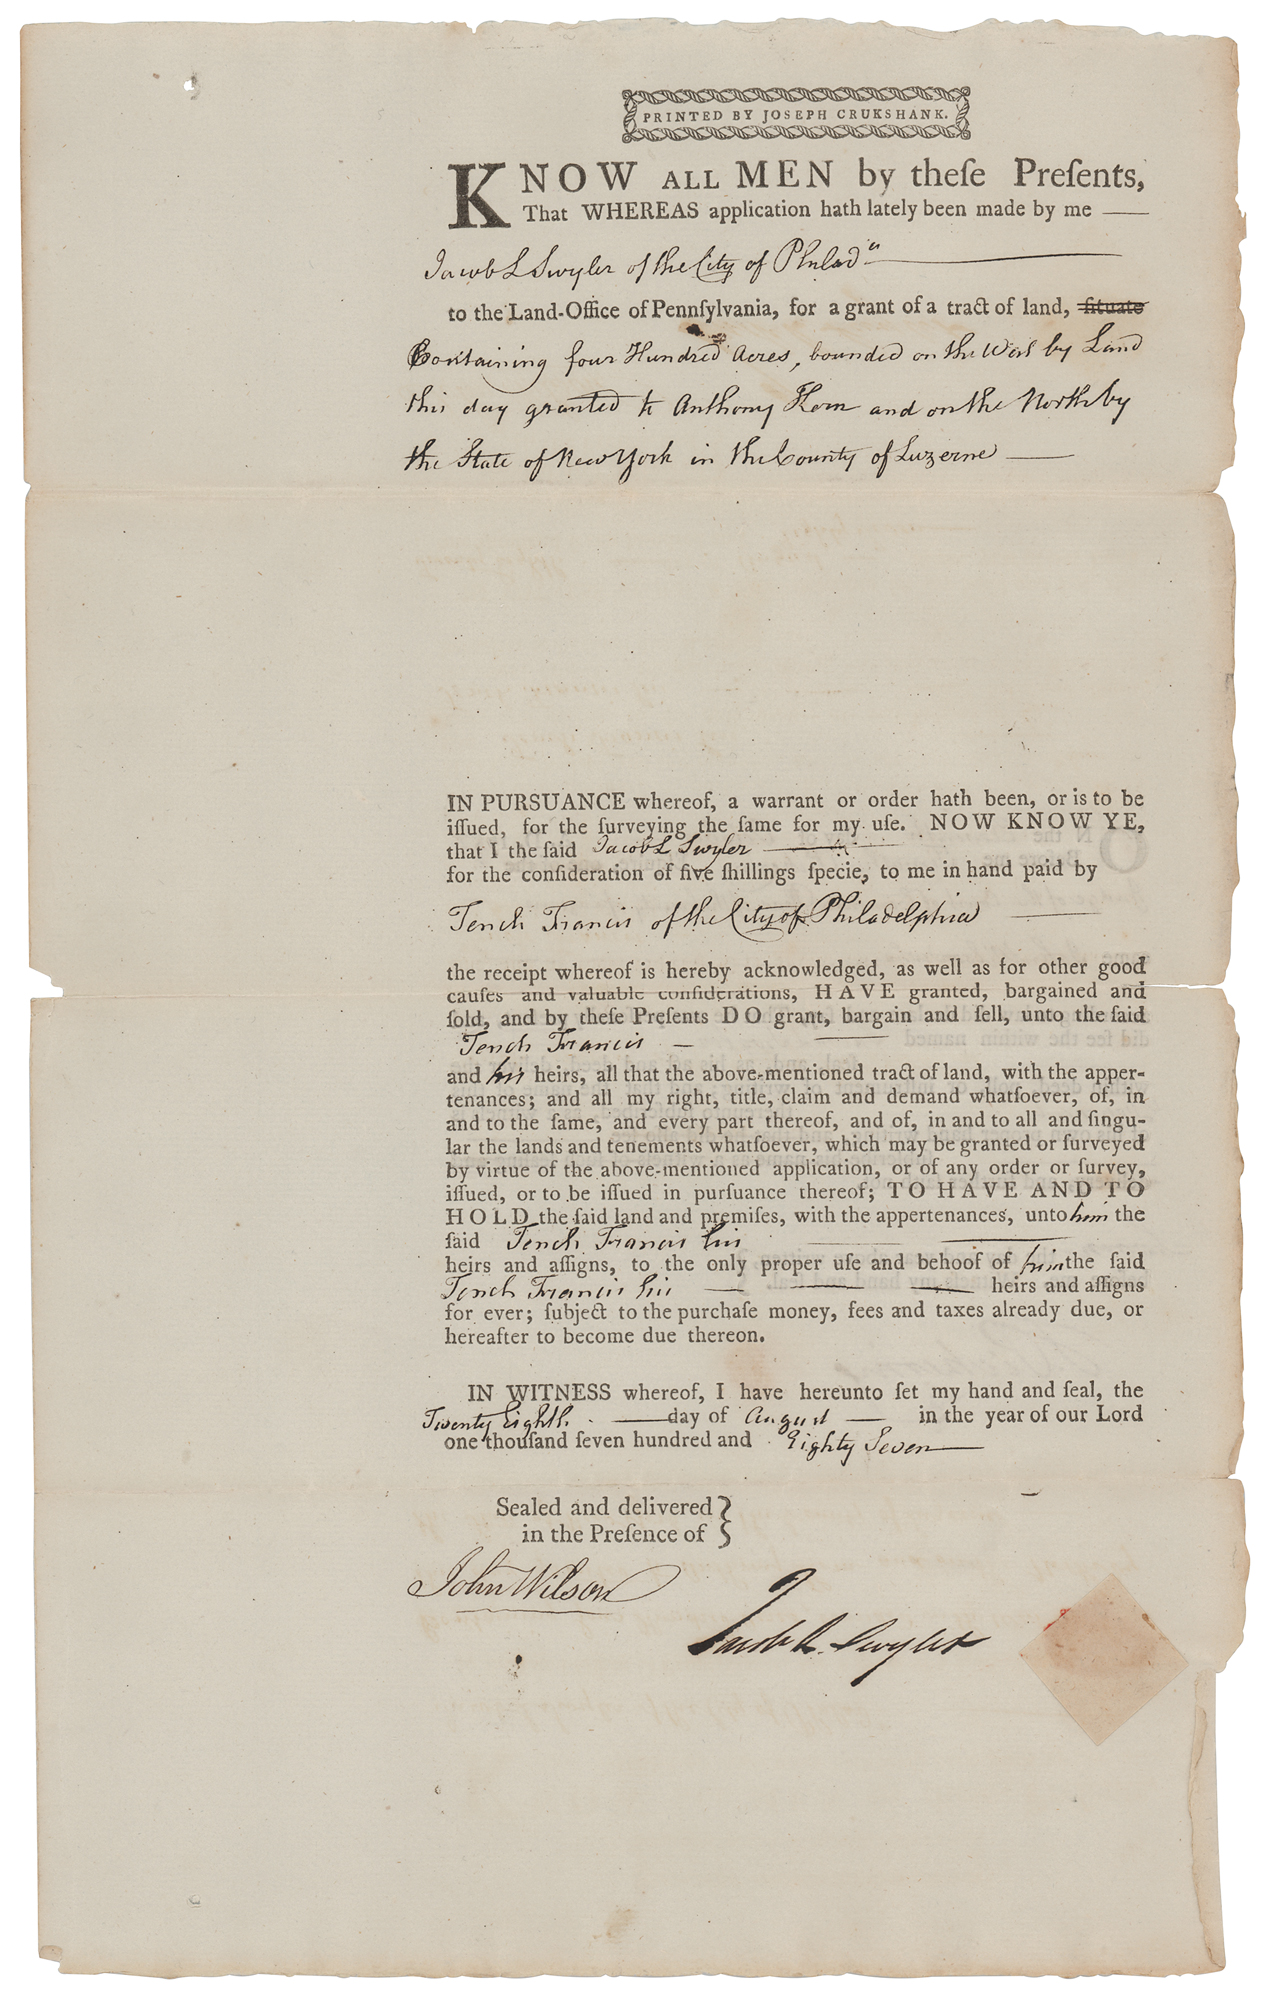 PRINTED BY JOSEPH CRUKSHANK.
KNOW ALL MEN by theſe Preſents,
That WHEREAS application hath lately been made by me
Jacob L Swyler of the City of Philadª
to the Land-Office of Pennſylvania, for a grant of a tract of land, ſituate
Containing four Hundred Acres, bounded on the West by Land
this day granted to Anthony Horn and on the North by
the State of New York in the County of Luzerne
IN PURSUANCE whereof, a warrant or order hath been, or is to be
iſſued, for the ſurveying the ſame for my uſe. NOW KNOW YE,
that I the ſaid Jacob L Swyler
for the conſideration of five ſhillings ſpecie, to me in hand paid by
Tench Francis of the City of Philadelphia
the receipt whereof is hereby acknowledged, as well as for other good
cauſes and valuable conſiderations, HAVE granted, bargained and
ſold, and by theſe Preſents DO grant, bargain and ſell, unto the ſaid
Tench Francis
and his heirs, all that the above-mentioned tract of land, with the apper-
tenances; and all my right, title, claim and demand whatſoever, of, in
and to the ſame, and every part thereof, and of, in and to all and ſingu-
lar the lands and tenements whatſoever, which may be granted or ſurveyed
by virtue of the above-mentioned application, or of any order or ſurvey,
iſſued, or to be iſſued in purſuance thereof; TO HAVE AND TO
HOLD the ſaid land and premiſes, with the appertenances, unto him the
ſaid Tench Francis his
heirs and aſſigns, to the only proper uſe and behoof of him the ſaid
Tench Francis his heirs and aſſigns
for ever; ſubject to the purchaſe money, fees and taxes already due, or
hereafter to become due thereon.
IN WITNESS whereof, I have hereunto ſet my hand and ſeal, the
Twenty Eighth day of August in the year of our Lord
one thouſand ſeven hundred and Eighty Seven
Sealed and delivered
in the Preſence of
John Wilson
Jacob L. Swyler